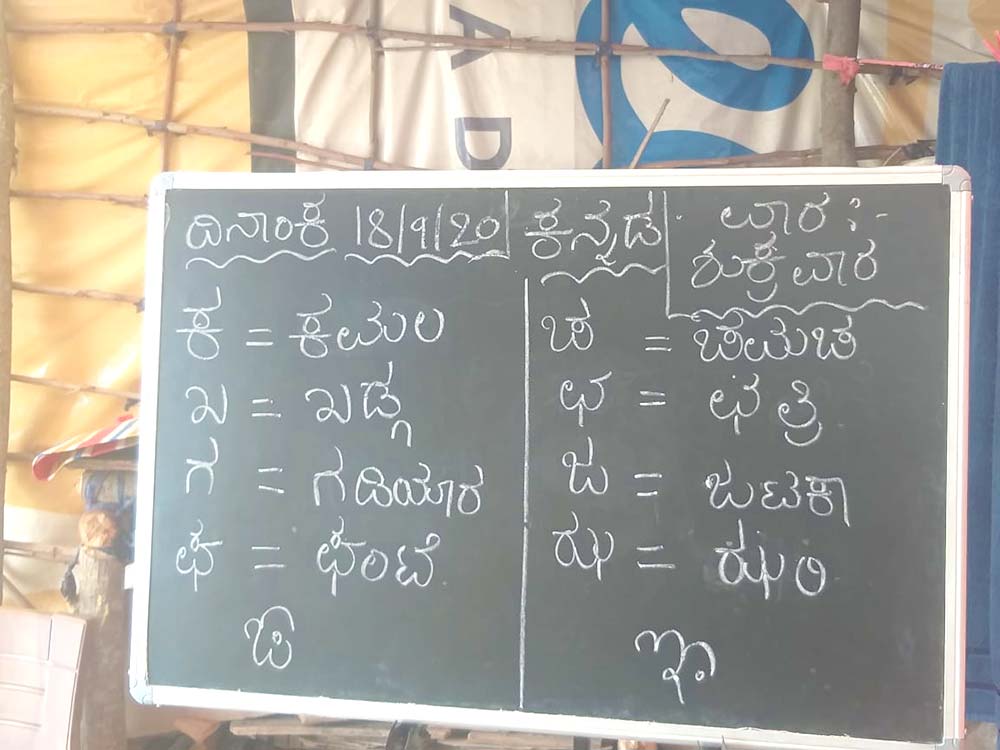 AD
ದಿನಾಂಕ 18/9/20 ಕನ್ನಡ ವಾರ :-
ಶುಕ್ರವಾರ
ಕ = ಕಮಲ
ಖ = ಖಡ್ಗ
ಗ = ಗಡಿಯಾರ
ಘ = ಘಂಟೆ
ಙ
ಚ = ಚಮಚ
ಛ = ಛತ್ರಿ
ಜ = ಜಟಕಾ
ಝ = ಝರಿ
ಞ